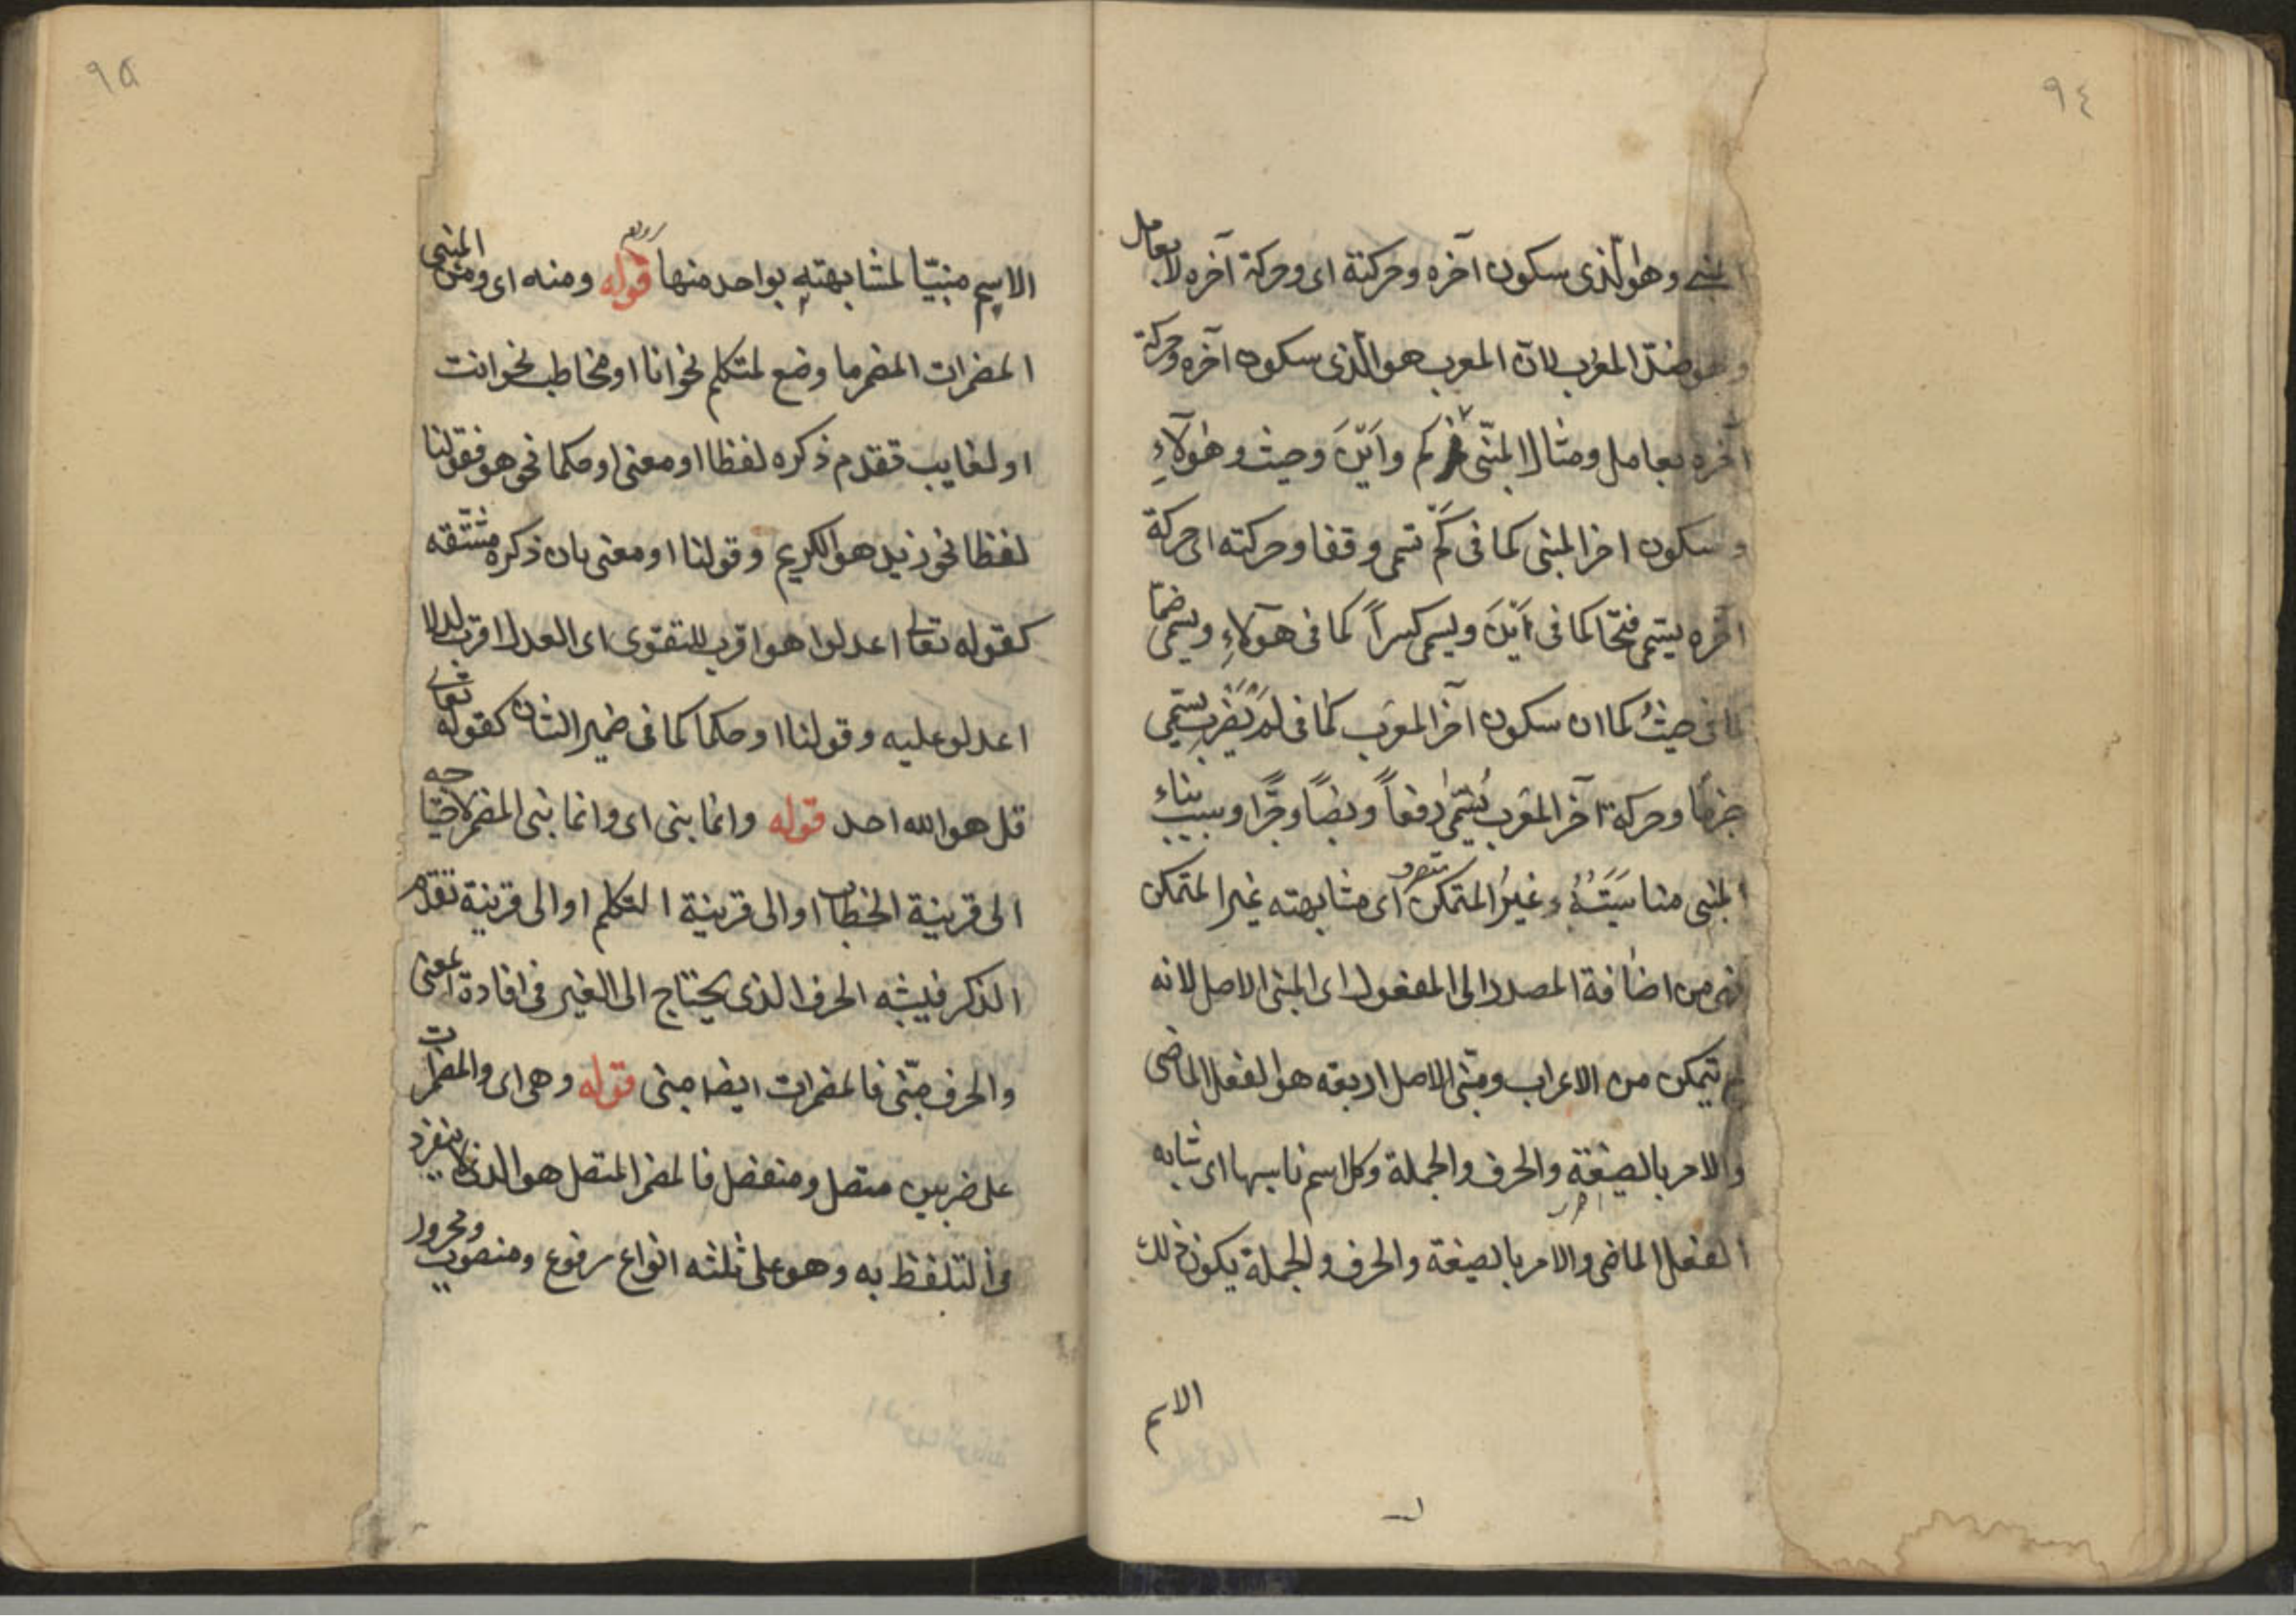 ٩٤
المبنى وهو الذى سكون آخره وحركته اى وحركة آخره لا بعامل
وهو ضدّ المعرب لانّ المعرب هو الذى سكون آخره وحركة
آخره بعامل ومثال المبنى كم واَيْنَ وحيث وهؤلآءِ
وسكون اخر المبنى كما فى كم يسمى وقفا وحركته اى حركة
آخره يسمى فتحًا كما فى اَيْنَ ويسمى كسراً كما فى هؤلآءِ ويسمى ضمّا
كما فى حيثُ كما ان سكون آخر المعرب كما فى لم يضرب يسمى
جزمًا وحركة آخر المعرب يُسمّى رفعاً ونصبًا وجرًّا وسبب بناء
المبنى مناسَبَتُهُ غيرُ المتمكن اى مشابهته غير المتمكن
فهو من اضافة المصدر الى المفعول اى المبنى الاصل لانه
لم يتمكن من الاعراب ومبنى الاصل اربعه هو الفعل الماضى
والامر بالصيغة والحرف والجملة وكل اسم ناسبها اى شابه
الفعل الماضى والامر بالصيغة والحرف والجملة يكون ذلك
الاسم
٩٥
الاسم مبنيّا لمشابهته بواحد منها قوله ومنه اى ومن المبنى
المضمرات المضمر ما وضع لمتكلم نحو انا او مخاطب نحو انت
او لغايب تقدم ذكره لفظا او معنى او حكما نحو هو فقولنا
لفظا نحو زيد هو الكريم وقولنا او معنى بان ذكره مشتقه
كقوله تعالى اعدلوا هو اقرب للتقوى اى العدل اقرب لدلالة
اعدلو عليه وقولنا او حكما كما فى ضمير الشان كقوله تعالى
قل هو الله احد قوله وانما بنى اى وانما بنى المضمر لاحتياجه
الى قرينة الخطاب او الى قرينة التكلم او الى قرينة تقدم
الذكر فيشبه الحرف الذى يحتاج الى الغير فى افادة المعنى
والحرف مبنّى فالمضمرات ايضا مبنى قوله وهى اى والمضمرات
على ضربين متصل ومنفصل فالمضمر المتصل هو الذى لا ينفرد
فى التلفظ به وهو على ثلثه انواع مرفوع ومنصوب ومجرور